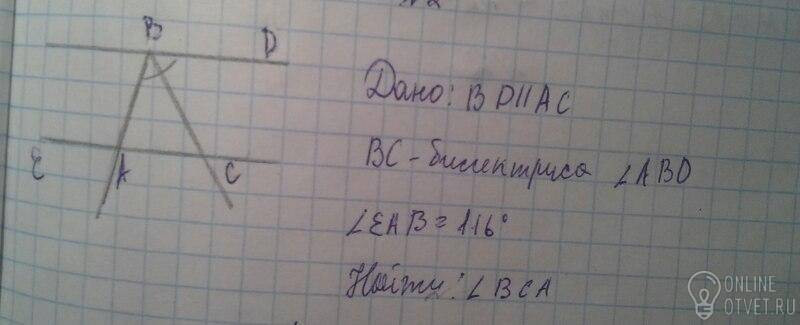 №2
B
D
E
A
C
Дано: BD||AC
BC-биссектриса ∠ABD
∠EAB = 116°
Найти: ∠BCA
ONLINE
OTVET.RU